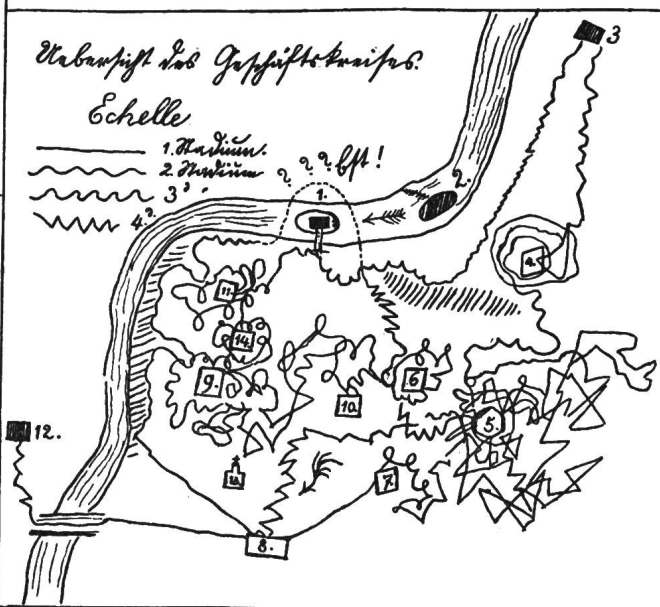 Uebersicht des Geschäftskreises.
Echelle
1. Stadium.
2. Stadium
3 "
4 "
? ? ? bst!
1.
2.
3
4.
11.
14.
9.
6
10.
5.
12.
7.
8.